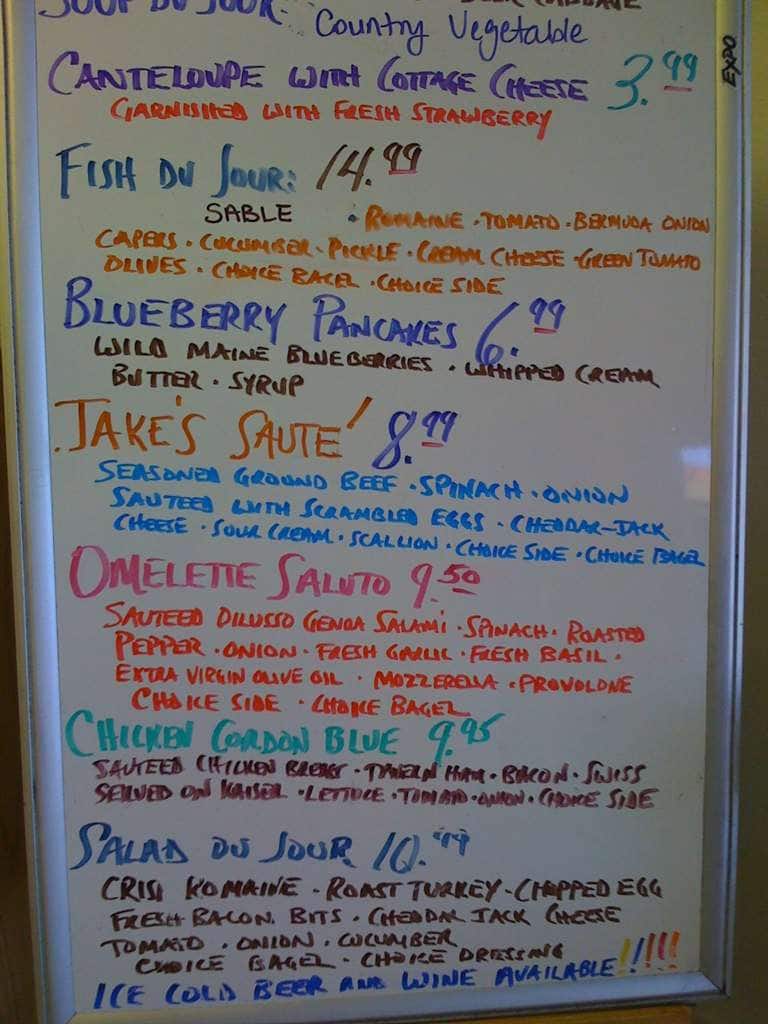 SOUP DU JOUR:
Country Vegetable
CANTELOUPE WITH COTTAGE CHEESE 3.99
EXPO
GARNISHED WITH FRESH STRAWBERRY
FISH DU JOUR: 14.99
SABLE • ROMAINE • TOMATO • BERMUDA ONION
CAPERS • CUCUMBER • PICKLE • CREAM CHEESE • GREEN TOMATO
OLIVES • CHOICE BAGEL • CHOICE SIDE
BLUEBERRY PANCAKES 6.99
WILD MAINE BLUEBERRIES • WHIPPED CREAM
BUTTER • SYRUP
JAKE'S SAUTE' 8.99
SEASONED GROUND BEEF • SPINACH • ONION
SAUTEED WITH SCRAMBLED EGGS • CHEDDAR-JACK
CHEESE • SOUR CREAM • SCALLION • CHOICE SIDE • CHOICE BAGEL
OMELETTE SALUTO 9.50
SAUTEED DILUSSO GENOA SALAMI • SPINACH • ROASTED
PEPPER • ONION • FRESH GARLIC • FRESH BASIL •
EXTRA VIRGIN OLIVE OIL • MOZZERELLA • PROVOLONE
CHOICE SIDE • CHOICE BAGEL
CHICKEN CORDON BLUE 9.95
SAUTEED CHICKEN BREAST • TAVERN HAM • BACON • SWISS
SERVED ON KAISER • LETTUCE • TOMATO • ONION • CHOICE SIDE
SALAD DU JOUR 10.99
CRISP ROMAINE • ROAST TURKEY • CHOPPED EGG
FRESH BACON BITS • CHEDDAR JACK CHEESE
TOMATO • ONION • CUCUMBER
CHOICE BAGEL • CHOICE DRESSING
ICE COLD BEER AND WINE AVAILABLE!!!!!